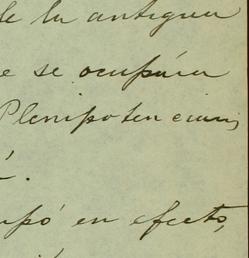 de la antigua
e se ocupára
Plenipotenciari
é.
upó en efecto,